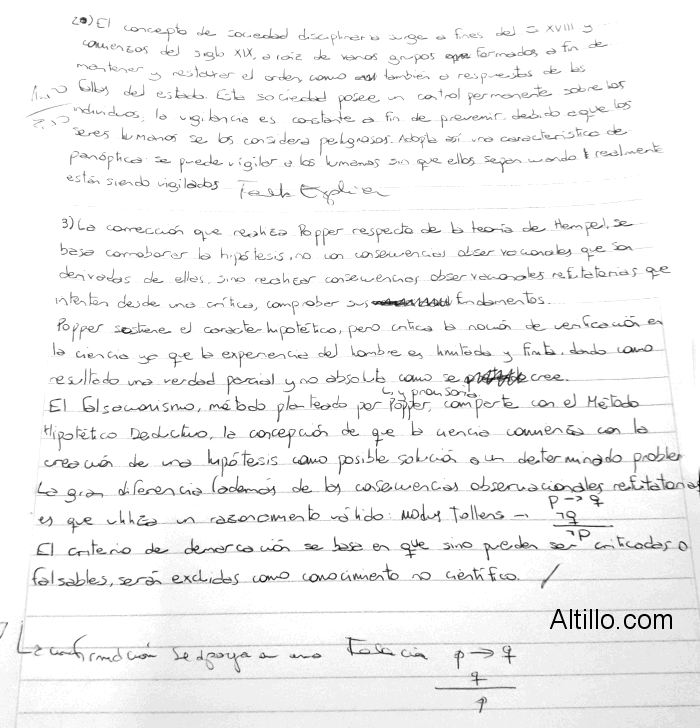 2) El concepto de sociedad disciplinaria surge a fines del S XVIII y
comienzos del siglo XIX, a raiz de varios grupos formados a fin de
mantener y restaurar el orden, como también a respuestas de las
fallas del estado. Esta sociedad posee un control permanente sobre los
individuos, la vigilancia es constante a fin de prevenir debido a que los
seres humanos se los considera peligrosos. Adopta así una característica de
panóptico se puede vigilar a los humanos sin que ellos sepan cuando realmente
están siendo vigilados Falta Explicar
3) La corrección que realiza Popper respecto de la teoría de Hempel, se
basa corroborar la hipótesis, no con consecuencias observacionales que son
derivadas de ellas, sino realizar consecuencias observacionales refutatorias que
intenten desde una crítica, comprobar sus fundamentos.
Popper sostiene el caracter hipotético, pero critica la noción de verificación en
la ciencia ya que la experiencia del hombre es limitada y finita, dando como
resultado una verdad parcial y no absoluta como se cree.
y provisoria
El falsacionismo, método planteado por Popper, comparte con el Método
Hipotético Deductivo, la concepción de que la ciencia comienza con la
creación de una hipótesis como posible solución a un determinado proble
La gran diferencia (además de las consecuencias observacionales refutatorias
es que utiliza un razonamiento válido: Modus Tollens → p → q
¬q
¬p
El criterio de demarcación se basa en que sino pueden ser criticadas o
falsables, serán excluidas como conocimiento no científico.
La confirmación se apoya a una Falacia p → q
q
p
Altillo.com